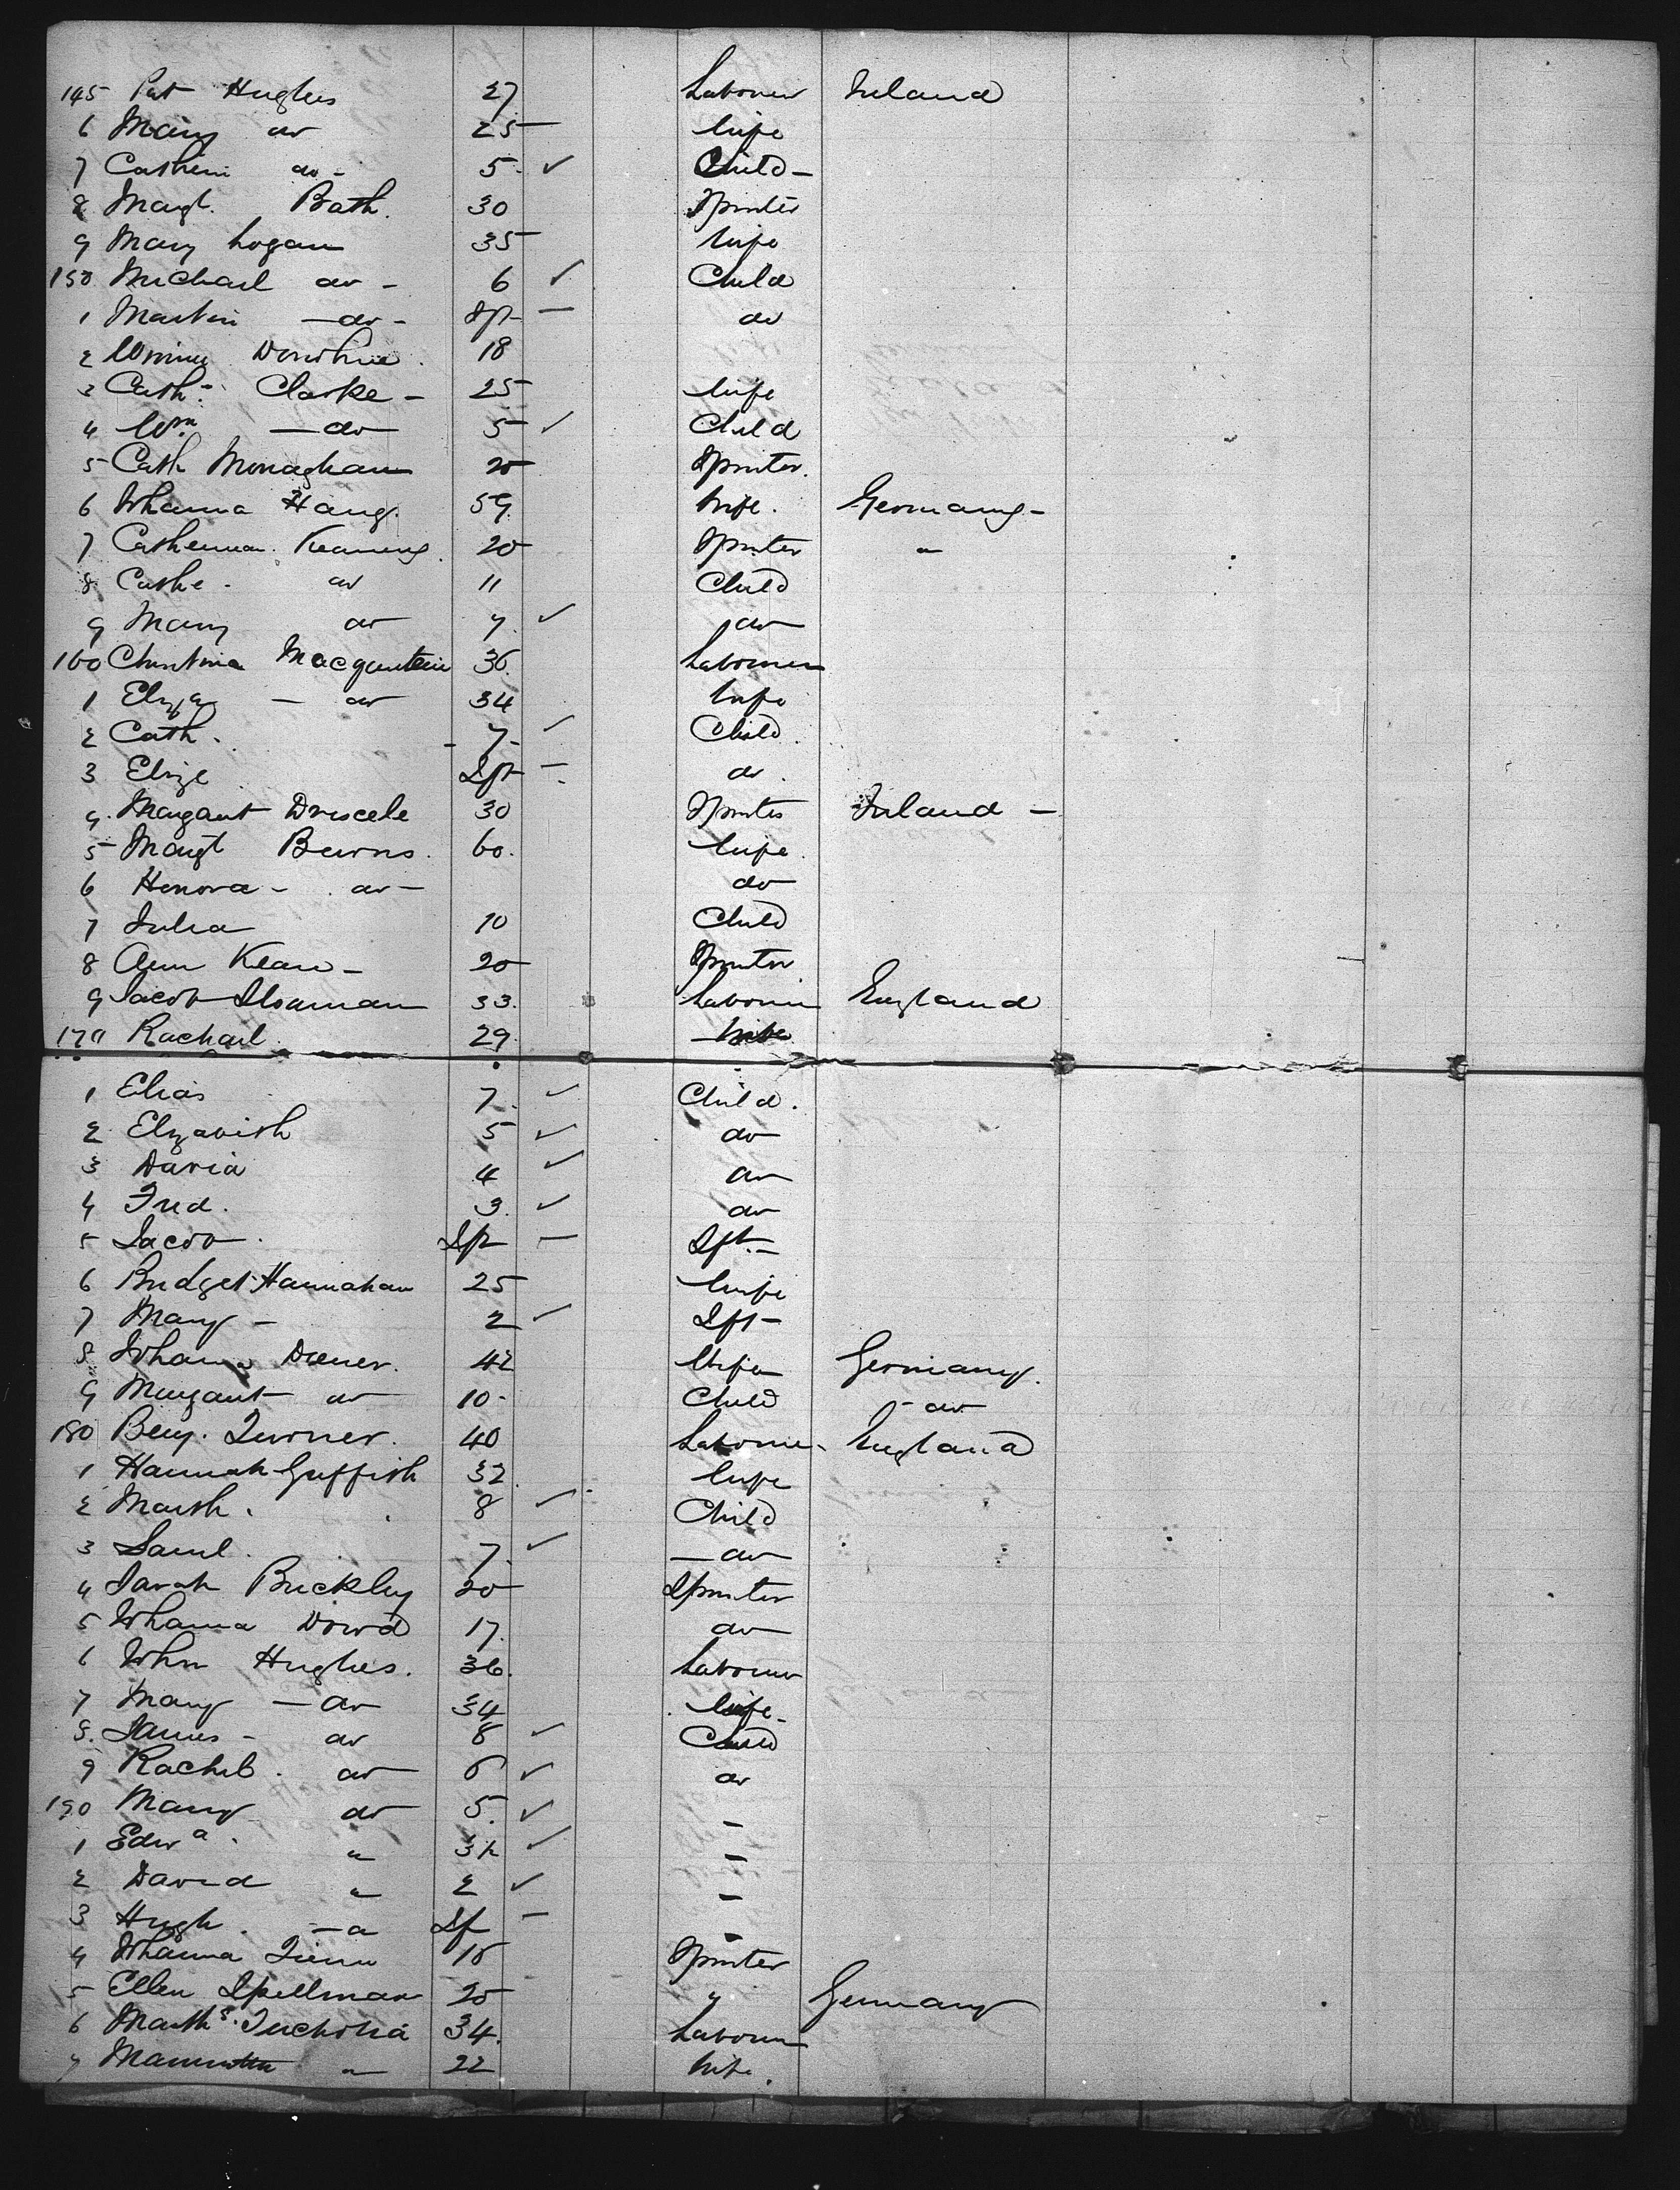 145 Pat Hughes 27 Laborer Ireland
6 Mary do 25 Wife
7 Cathrin do - 5 ✓ Child -
8 Margt. Bath. 30 Spinster
9 Mary Logan 35 Wife
150 Michael do - 6 ✓ Child
1 Martin - do - Inft - do
2 Winny Donohue 18
3 Cath: Clarke - 25 Wife
4 Wm - do 5 ✓ Child
5 Cath Monaghan 20 Spinster.
6 Johanna Haug. 59 Wife. Germany -
7 Catherina 20 Spinster "
8 Cathe - do 11 Child
9 Mary do 7 ✓ do
160 Christina 36 Laborer
1 Eliza - do 34 Wife
2 Cath. - 7 - ✓ Child.
3 Elize Inft - do.
4. Margaret Driscele 30 Spinster Ireland -
5 Margt Burns. 60. Wife.
6 Honora - do - do
7 Julia 10 Child
8 Ann Kean - 20 Spinster
9 Jacob Sloaman 33. Laborer England
170 Rachael 29. Wife
1 Elias 7. ✓ Child.
2 Elizabith 5 ✓ do
3 David 4 ✓ do
4 Fred. 3. ✓ do
5 Jacob. Inft - Inft. -
6 Bridget Hannahan 25 Wife
7 Mary - 2 ✓ Inft -
8 Johanna Diener. 42 Wife Germany.
9 Margaret do 10 - Child - do
180 Benj. Turner. 40 Laborer - England
1 Hannah Griffith 32 Wife
2 Marth. 8 ✓ Child
3 Saml. 7. ✓ - do
4 Sarah Buckley 20 Spinster
5 Johanna Dowd 17. do
6 John Hughes. 36. Laborer
7 Mary - do 34 Wife -
8. James - do 8 ✓ Child
9 Rachel. do 6 ✓ do
190 Mary do 5. ✓ -
1 Edwd. " 3½ ✓ -
2 David " 2 ✓ -
3 Hugh. - " Inf - -
4 Johanna 18 Spinster
5 Ellen Spellman 20 " Germany
6 Marths. 34. Laborer
7 " 22 Wife.